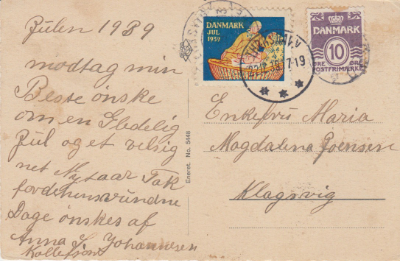 Julen 1939
modtag min
Beste ønske
om en Gledelig
Jul og et velsig
net Nytaar Tak
for de hensvundne
Dage ønskes af
Anna S Johannesen
Kollefjord
DANMARK
JUL
1939
DANMARK
10
ØRE ØRE
POSTFRIMÆRKE
7-19
Eneret. No.
Enkefru Maria
Magdalena Joensen
Klagsvig